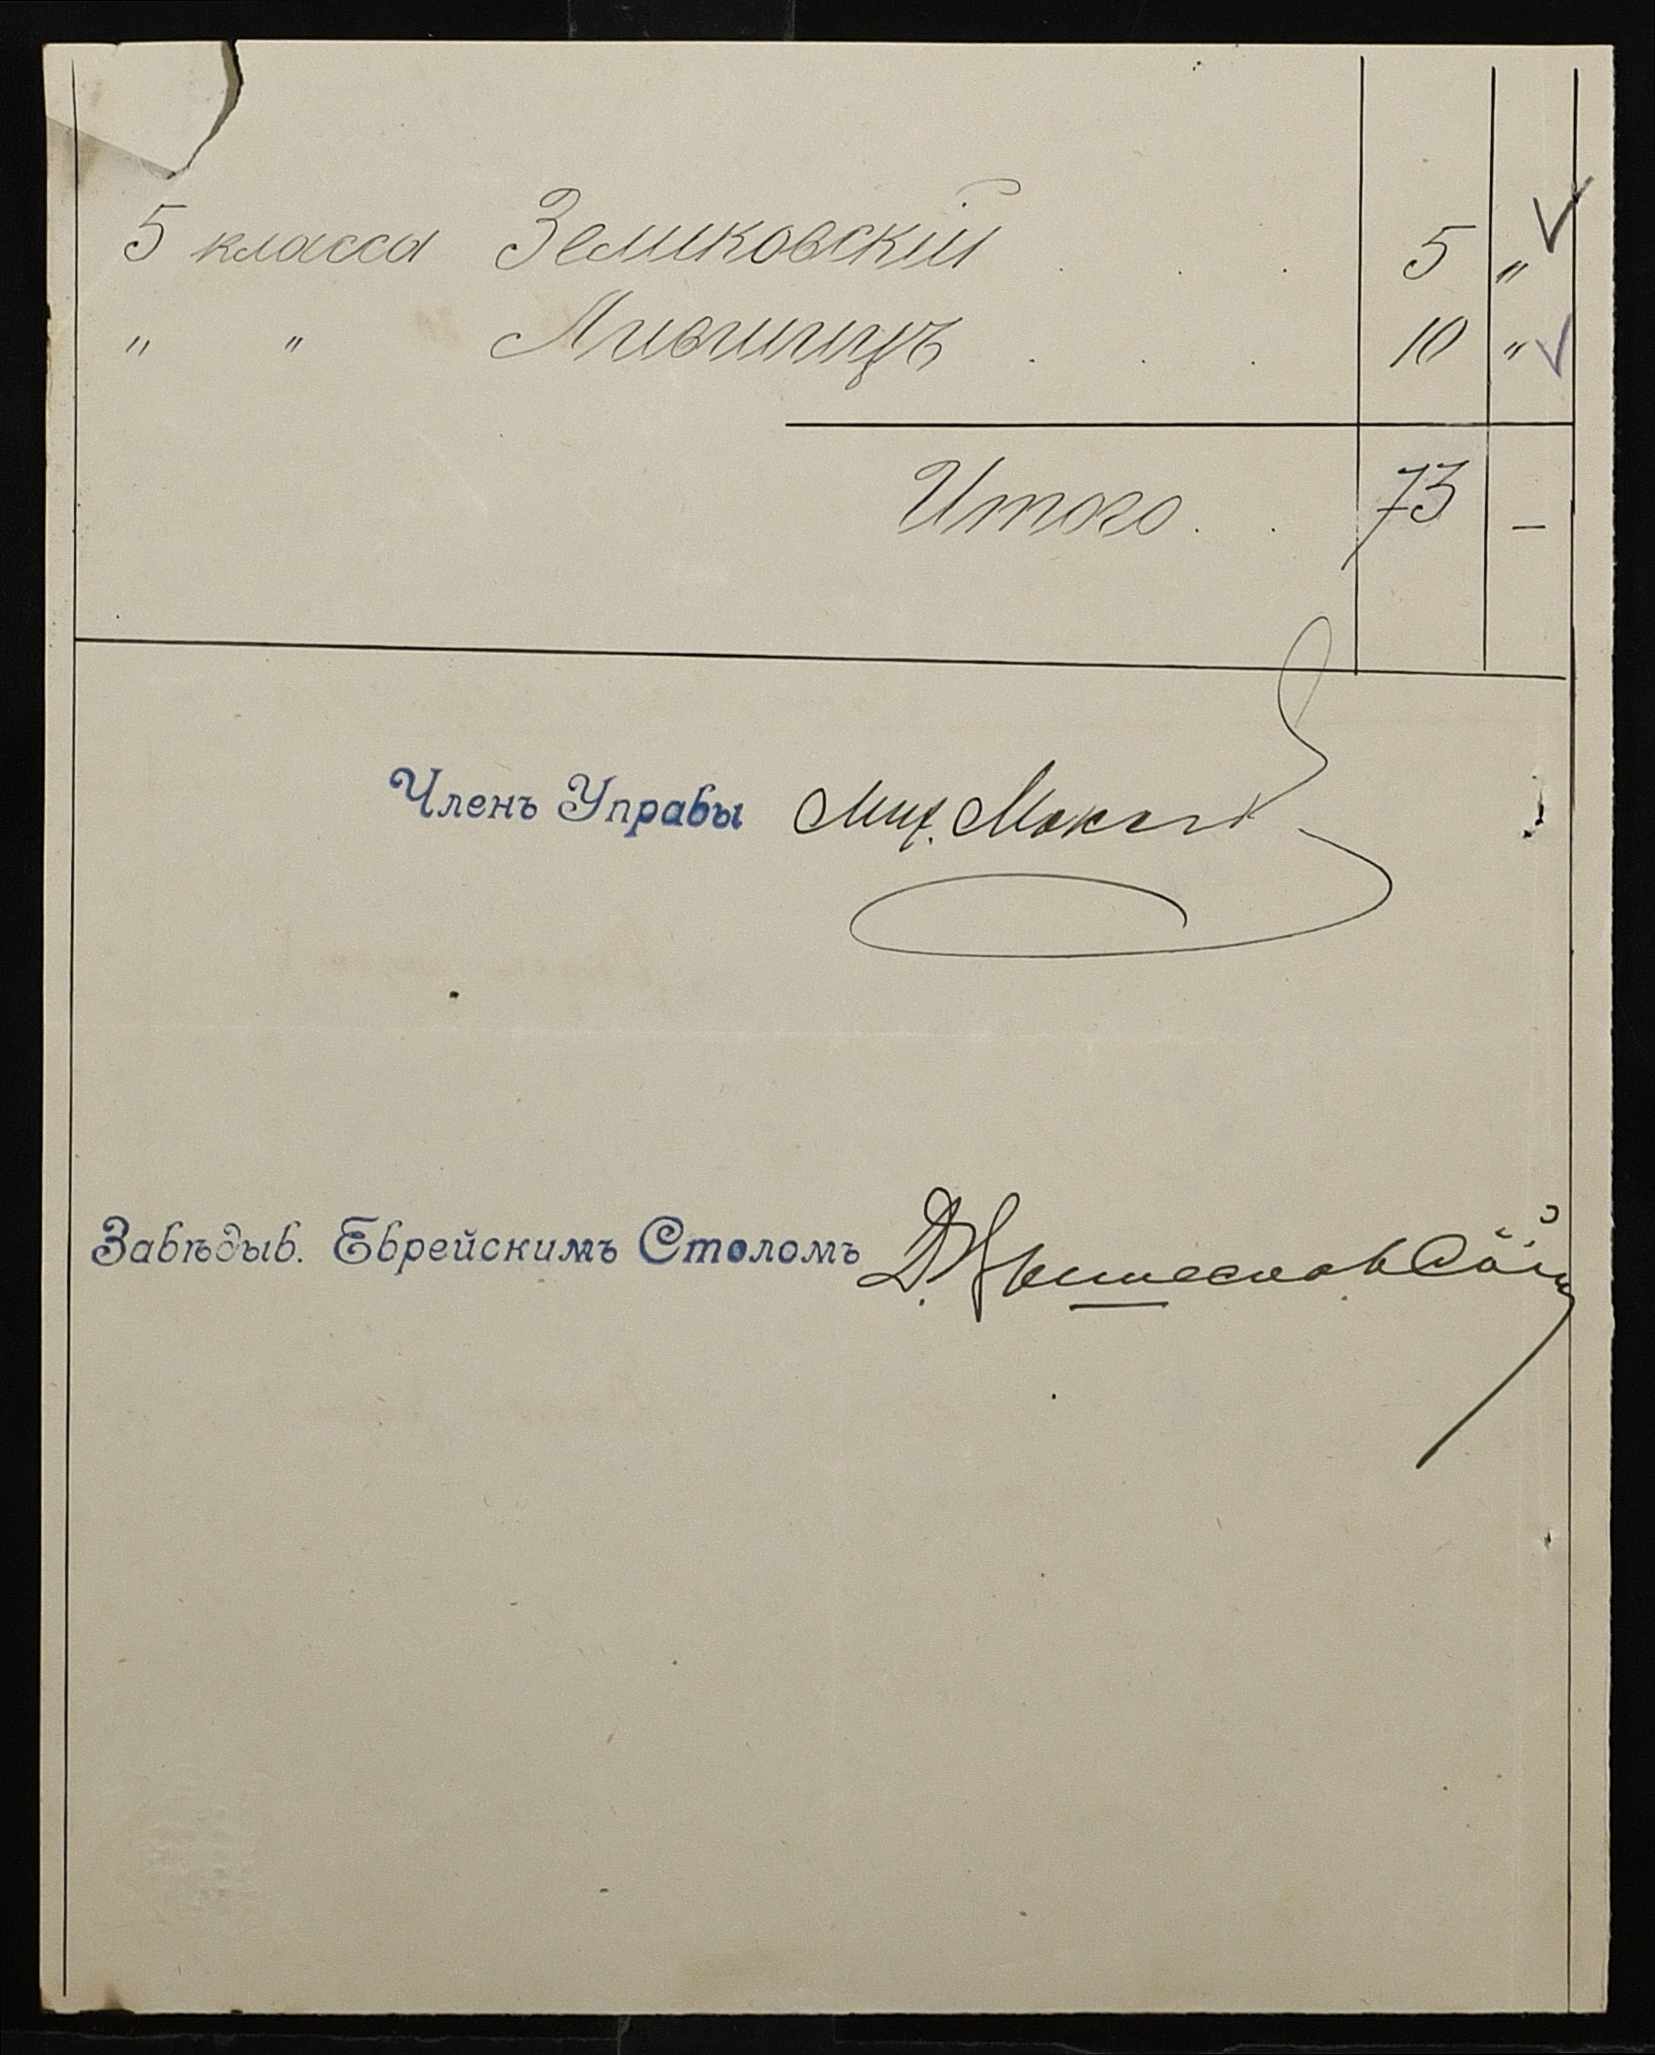 5 класса Зеликовскій . . . 5 „
„ „ Лившицъ . . . 10 „
Итого . . 73 —
Членъ Управы Мих.
Завѣдыв. Еврейскимъ Столомъ Д.